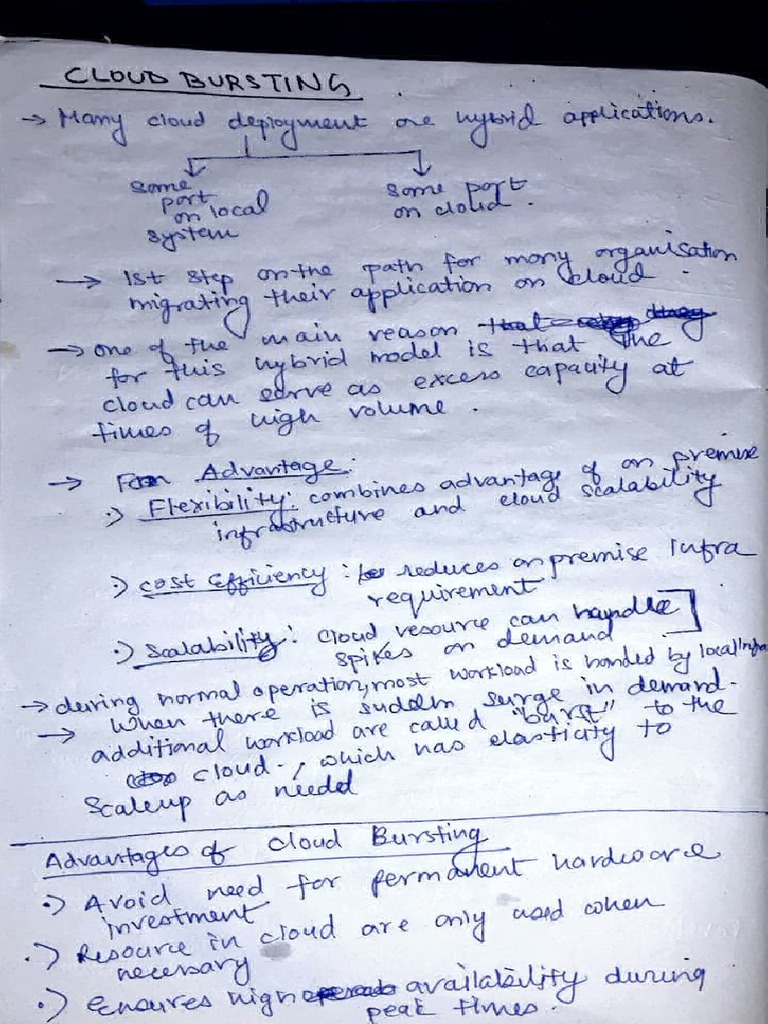 CLOUD BURSTING
→ Many cloud deployment are hybrid applications.
some
part
on local
system
some part
on cloud.
→ 1st step on the path for many organisation
migrating their application on cloud.
→ one of the main reason
for this hybrid model is that the
cloud can serve as excess capacity at
times of high volume.
→ Advantage:
·) Flexibility: combines advantage of on premise
infrastructure and cloud scalability
·) cost Efficiency: reduces on premise infra
requirement
·) Scalability: cloud resource can handle
spikes on demand
→ during normal operation, most workload is handed by local infra
→ when there is suddem surge in demand.
additional workload are called "burst" to the
cloud., which has elasticity to
Scaleup as needed
Advantages of cloud Bursting
·) Avoid need for permanent hardware
investment
·) Resource in cloud are only used when
necessary
·) Ensures high availability during
peak times.